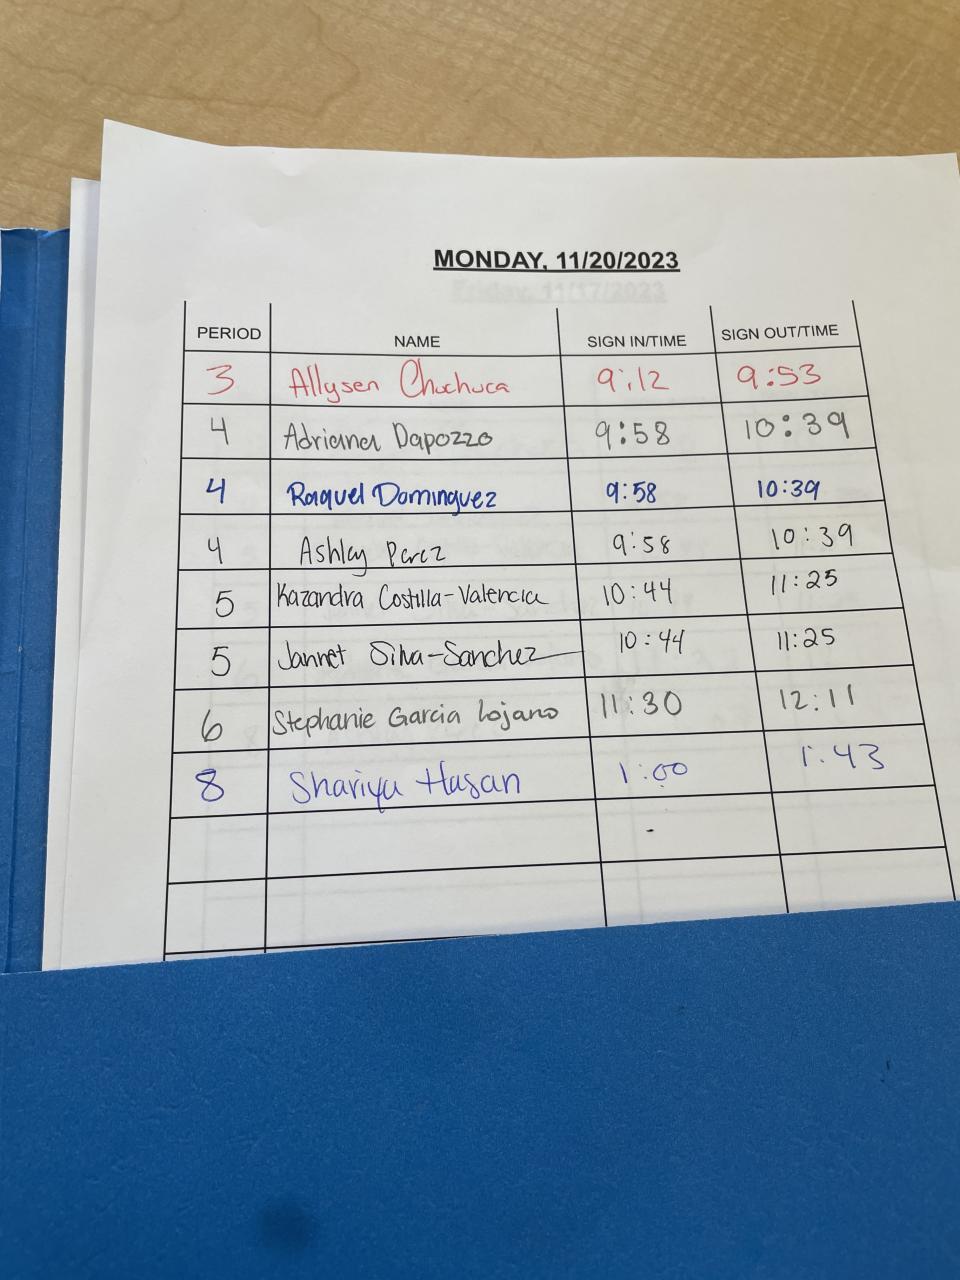 MONDAY, 11/20/2023
Friday, 11/17/2023
PERIOD NAME SIGN IN/TIME SIGN OUT/TIME
3 Allysen Chuchuca 9:12 9:53
4 Adriana Dapozzo 9:58 10:39
4 Raquel Dominguez 9:58 10:39
4 Ashley Perez 9:58 10:39
5 Kazandra Costilla-Valencia 10:44 11:25
5 Jannet Silva-Sanchez 10:44 11:25
6 Stephanie Garcia Lojano 11:30 12:11
8 Shariya Hasan 1:00 1:43